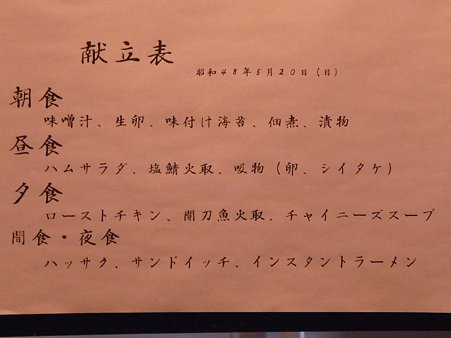 献立表
昭和48年5月20日(日)
朝食
味噌汁、生卵、味付け海苔、佃煮、漬物
昼食
ハムサラダ、塩鯖火取、吸物(卵、シイタケ)
夕食
ローストチキン、開刀魚火取、チャイニーズスープ
間食・夜食
ハッサク、サンドイッチ、インスタントラーメン